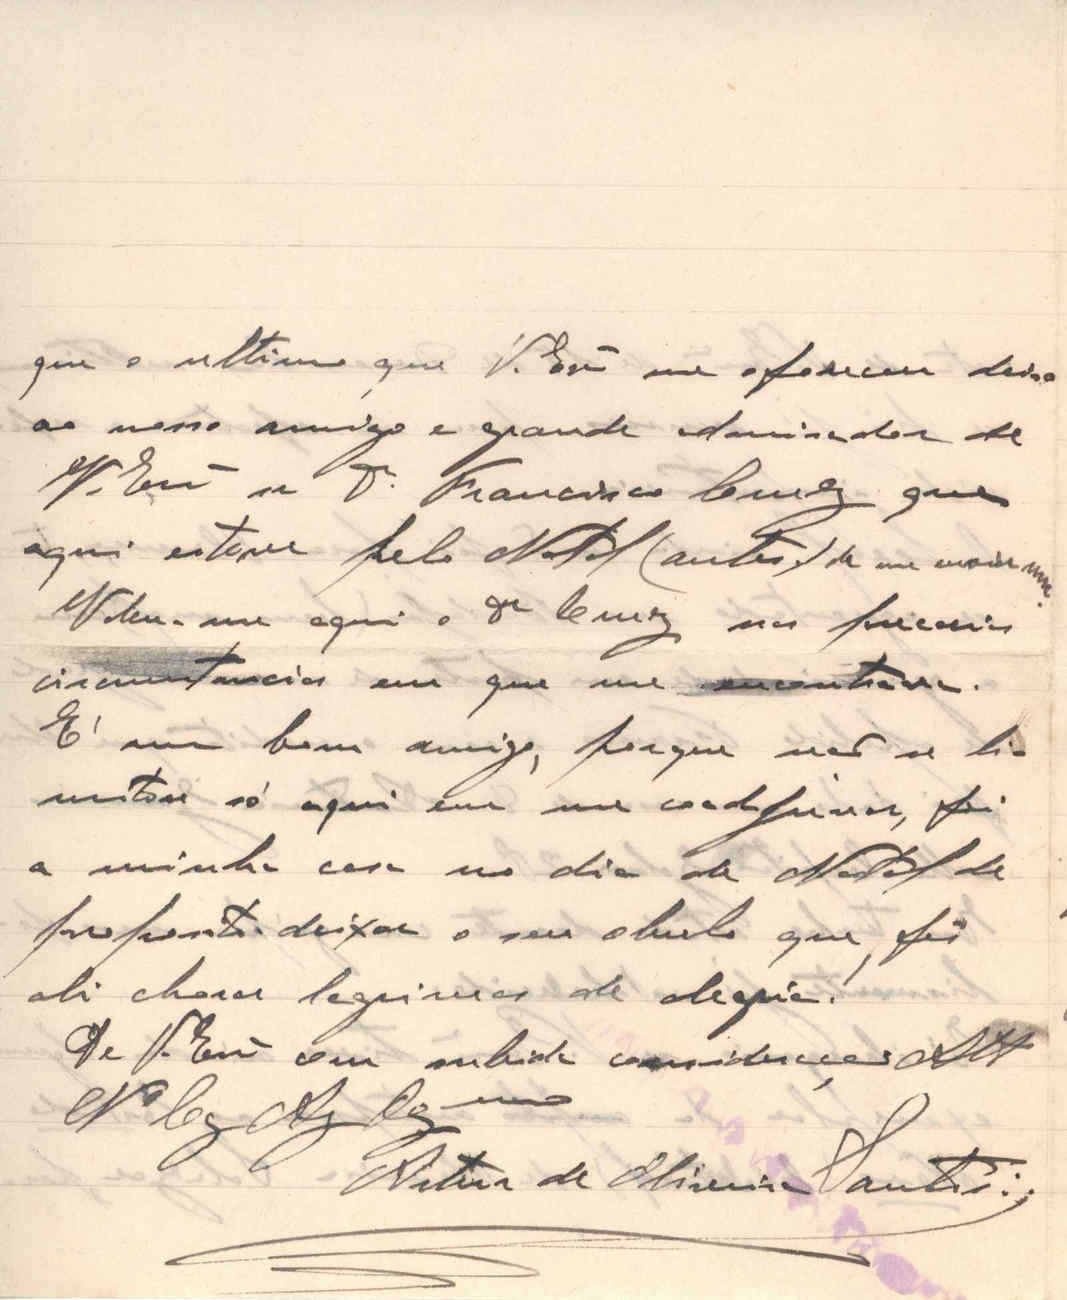 que o ultimo que V. Exª me ofereceu deixo
ao nosso amigo e grande admirador de
V. Exª sr Dr. Francisco Cruz que
aqui esteve pelo Natal (antes) de me
Valeu-me aqui o Dr Cruz nas precarias
circunstancias em que me encontrava.
É um bom amigo, porque não se li-
mitou só aqui em me coadjuvar, foi
a minha casa no dia de Natal de
proposito deixar o seu obulo que, fês
ali chorar lagrimas de alegria!
De V. Exª com subida consideração Attº
Vº
Artur de Oliveira Santos